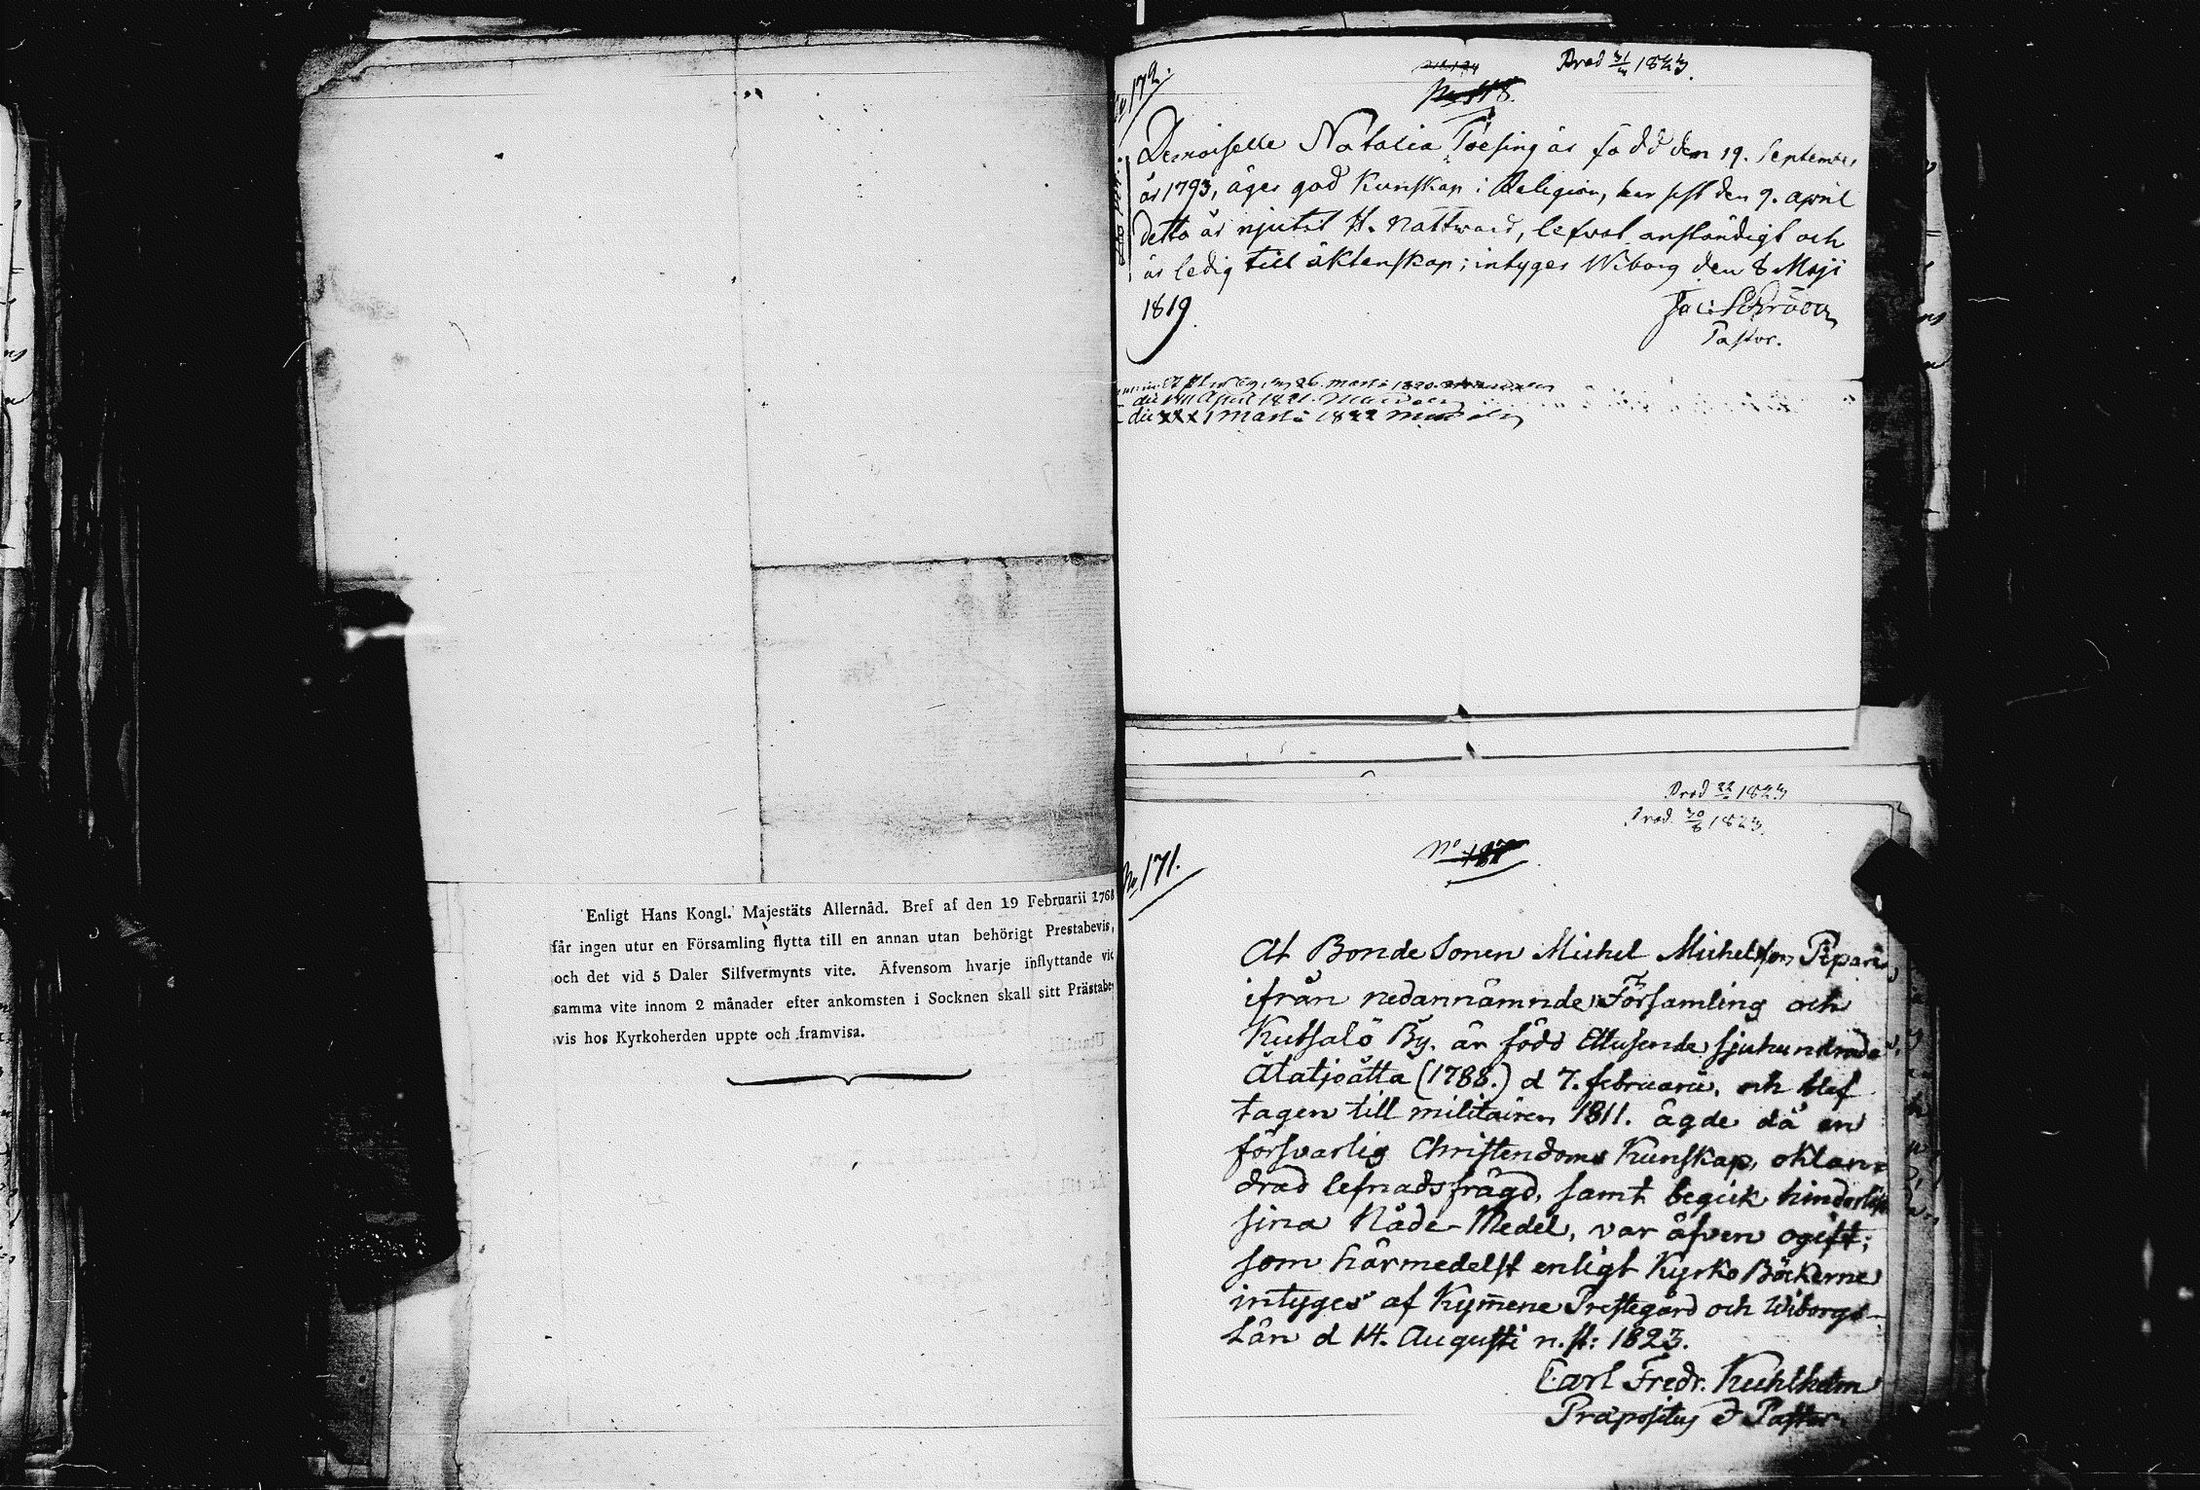 Enligt Hans Kongl. Majestäts Allernåd. Bref af den 19 Februarii 1768
får ingen utur en Församling flytta till en annan utan behörigt Prestabevis,
och det vid 5 Daler Silfvermynts vite. Äfvensom hvarje inflyttande vid
samma vite innom 2 månader efter ankomsten i Socknen skall sitt Prästabe-
vis hos Kyrkoherden uppte och framvisa.
No 172.
Prod 1823.
No 118.
Demoiselle Natalia Toesing är född den 19. September
år 1793, äger god Kunskap i Religion, har sist den 9. April
detta år njutit H. Nattward, lefvat anständigt och
är ledig till äktenskap; intyges Wiborg den 8 Maji
1819.
Jac: Schröder
Pastor.
26. martii 1820.
die April 1821.
die XXXI martii 1822
Prod 22 1823
Prod. 30/8 1823.
No 187
No 171.
At Bonde Sonen Michel Michelsson Pipari
ifrån nedannämnde Församling och
Kutsalö By. är född Ettusende sjuhundrade
Åtatjoåtta (1788.) d 7. februarii, och blef
tagen till militairen 1811. ägde då en
försvarlig Christendoms Kunskap, oklan-
drad lefnadsfrägd, samt begick hinderlöst
sina Nåde-Medel, var äfven ogift;
som härmedelst enligt Kyrko Böckerne
intyges af Kymmene Prestegård och Wiborgs-
Län d 14. Augusti n. st: 1823.
Carl Fredr. Kuhlholm
Præpositus & Pastor